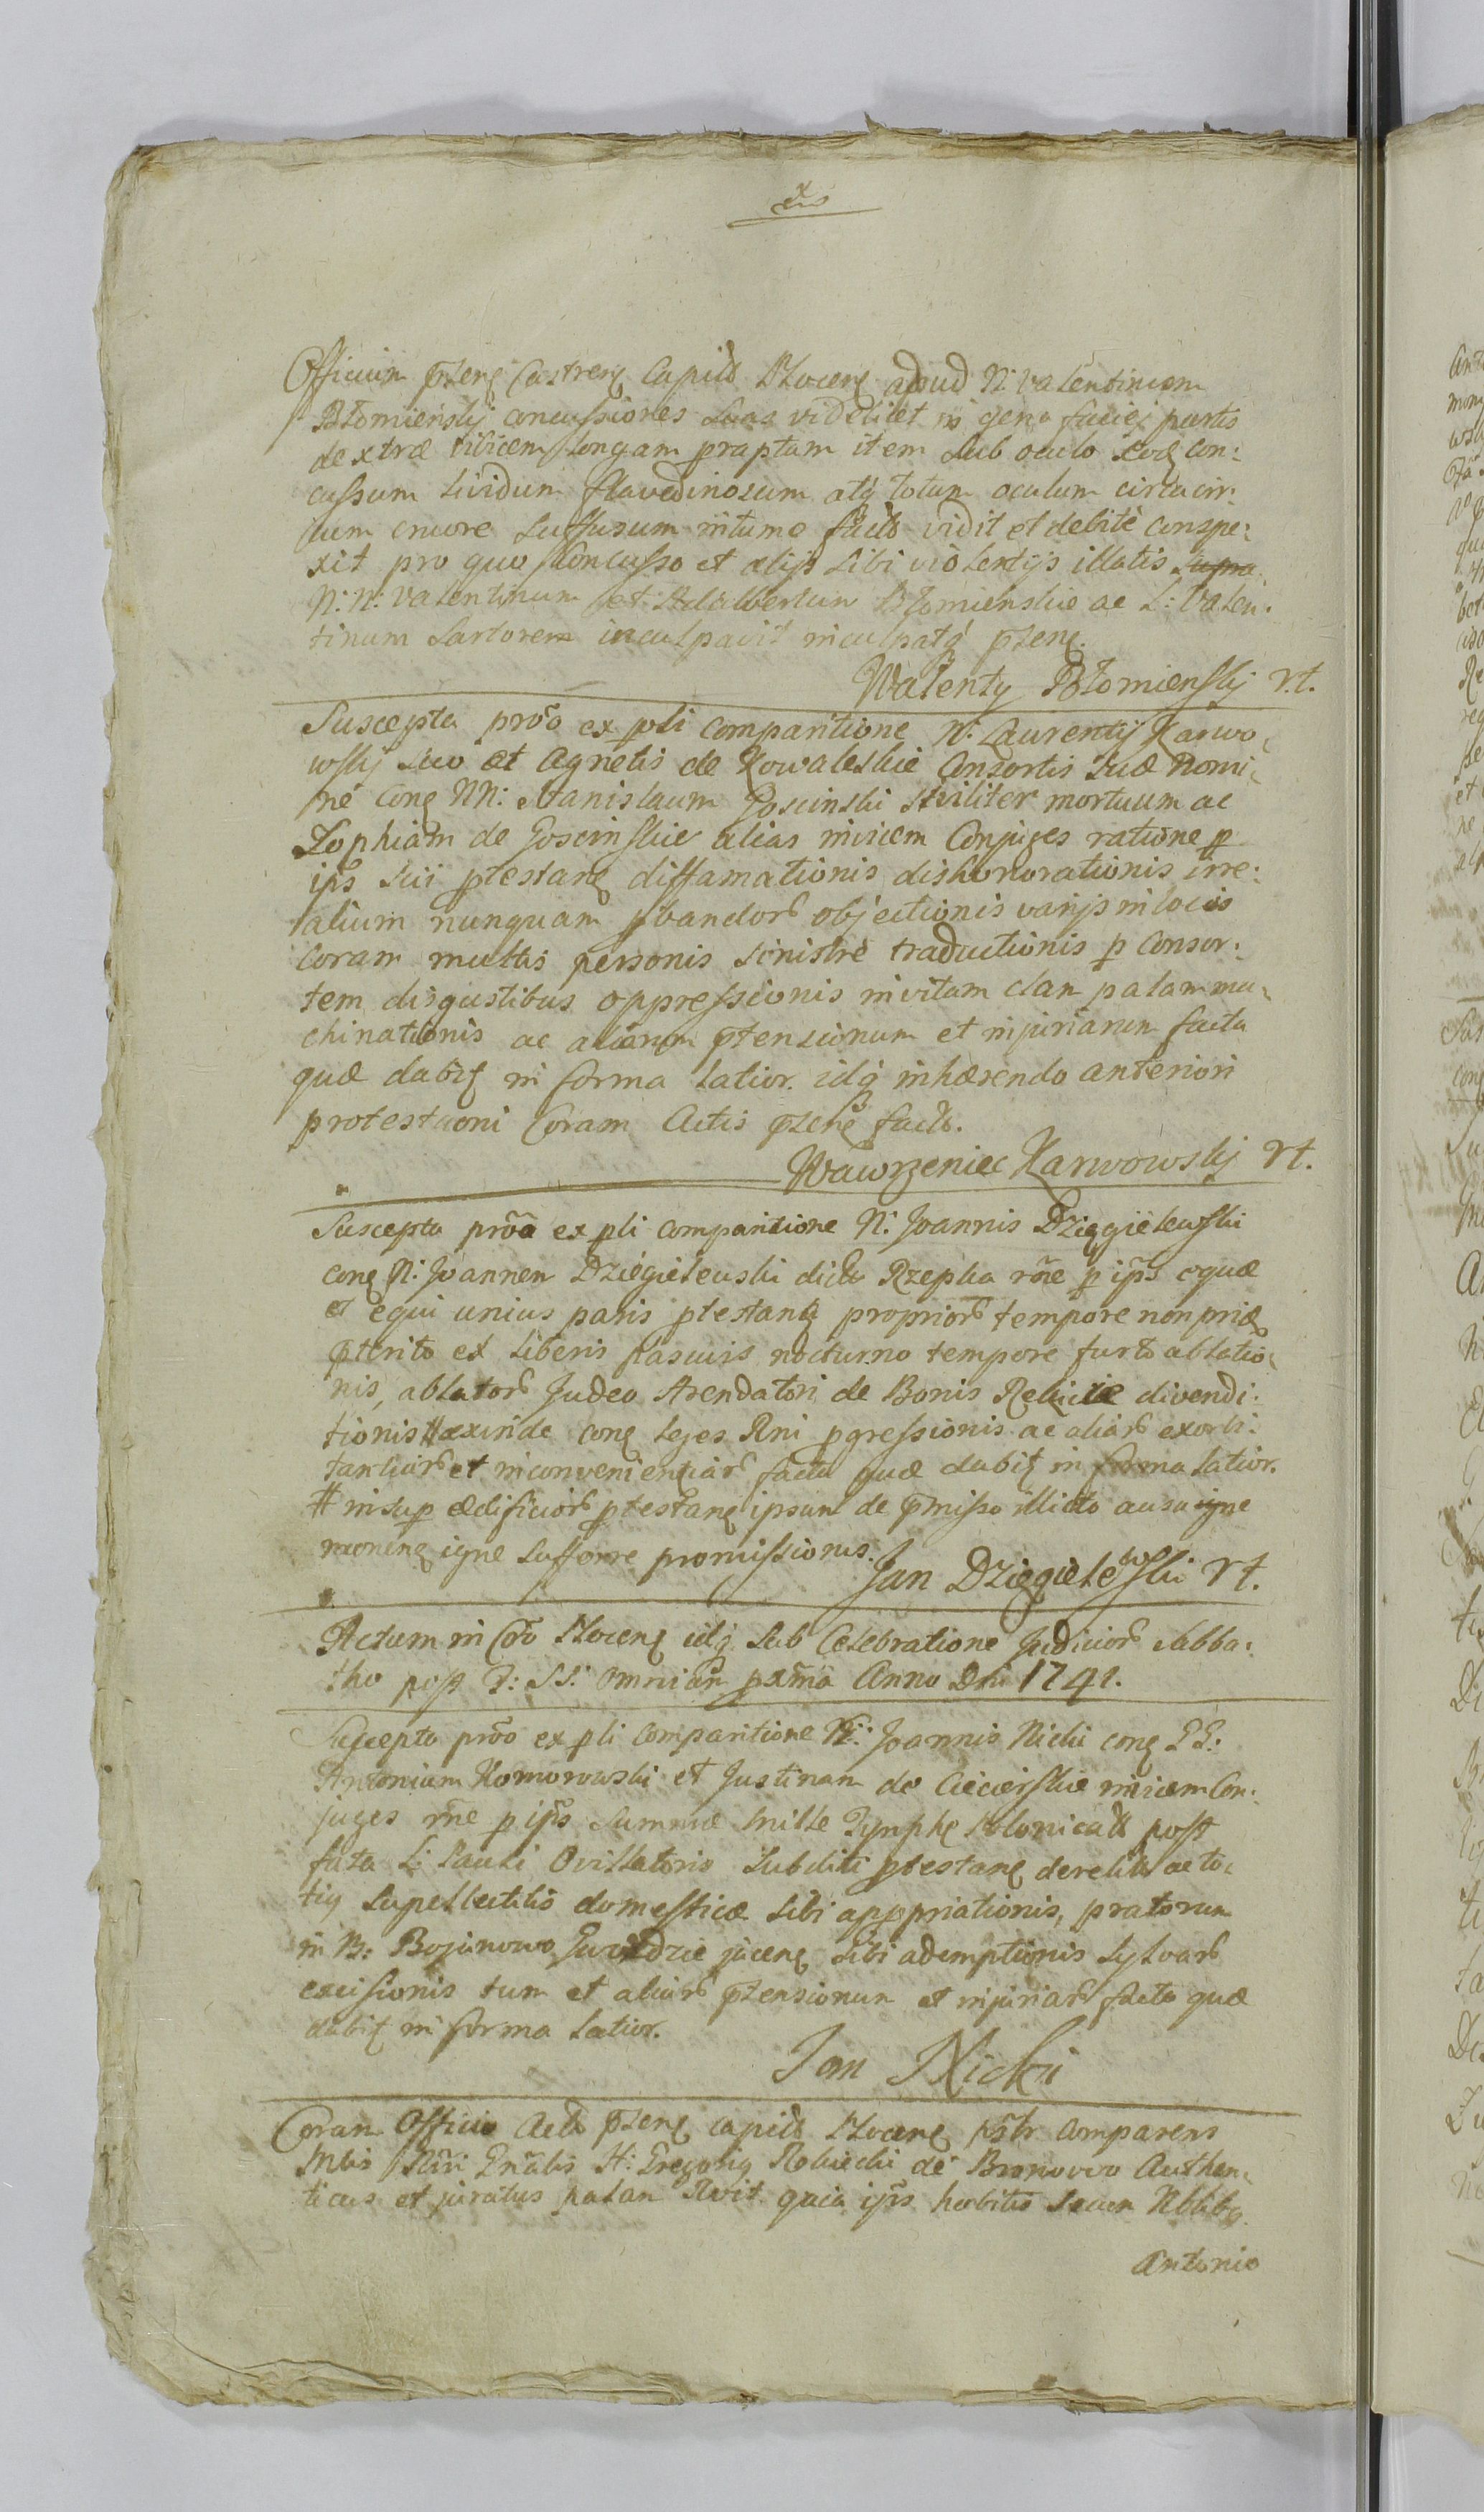 Officium pñteng Castreng Capitũ Ploceng apud N: Valentinum
Płomieński concussiones suas videlicet in gena faciei partis
dextræ vibicem longam præptam item sub oculo eodẽ con:
cussum lividum flavedinosum atq totum oculum circacir:
cum cruore suffusum intumo factũ vidit et debitè conspe:
xit pro quo concusso et alijs sibi violentijs illatis supra
N: N: Valentinum et Adalbertum Płomienskie ac L: Valen:
tinum Sartorem inculpavit inculpatq pñteng.
Walenty Płomienskj rt.
Suscepta prõo ex pli comparitione N: Laurentij Karwo:
wskj suo et Agnetis de Kowaleskie Consortis suæ nomi:
né cong NN: Stanislaum Goscinski siviliter mortuum ac
Zophiam de Goscinskie alias invicem Conjuges ratione p
ipš sui ptestang diffamationis dishonorationis irre:
alium nunquam pbandorũ objectionis varijs in locis
coram multis personis sinistrè traductionis p Consor:
tem disgustibus oppressionis invitam clam palam ma:
chinationis ac aliarum ptensionum et injuriarum facta
quæ dabiţ in forma latior. idq inhærendo anteriori
protestaõni Coram Actis pñteng factæ.
Wawrzeniec Karwowskj rt.
Suscepta prõa ex pli comparitione N: Joannis Dzięgielewski
cong N: Joannem Dzięgielewski dictũ Rzepka rõne p ipš equæ
et equi unius paris ptestantis propriorũ tempore non pride
pterito ex liberis pascuis nocturno tempore furto ablatio:
nis, ablatorũ Judeo Arendatori de Bonis Rekucie divendi:
tionis # exinde cong leges Rni pgressionis ac aliarũ exorbi:
tantiarũ et inconvenientiarũ facta quæ dabiţ in forma latior.
# insup ædificiorũ ptestang ipsum de pmisso illicito ausu igne
moneng igne sufferre promissionis.
Jan Dzięgielewski rt.
Actum in Cõ Ploceng idq sub Celebratione Judiciorũ Sabba:
tho post F: SS: omnium pxĩma Anno Dni 1741.
Suscepta prõo ex pli comparitione N: Joannis Nicki cong GG:
Antonium Komorowski et Justinam de Ciecierskie invicem Con:
juges rõne p ipš summæ mille Tynphę Polonicalũ post
fata L: Pauli Ovillatoris subditi ptestang derelictæ ac to:
tiq supellectilis domesticæ sibi appropriationis, pratorum
in B: Bozinowo Gwozdzie jaceng sibi ademptionis sylvarũ
excisionis tum et aliarũ ptensionum et injuriarũ facta quæ
dabiţ in forma latior.
Jan Nicki
Coram Officio Actũ pñteng capitũ Ploceng pslr comparens
Mtis Rñi Gnãlis H: Gregoriq Rekiecki de Bromowo Authen:
ticus et juratus palam Rvit quia ipš habitis secum Nblibq
Antonio